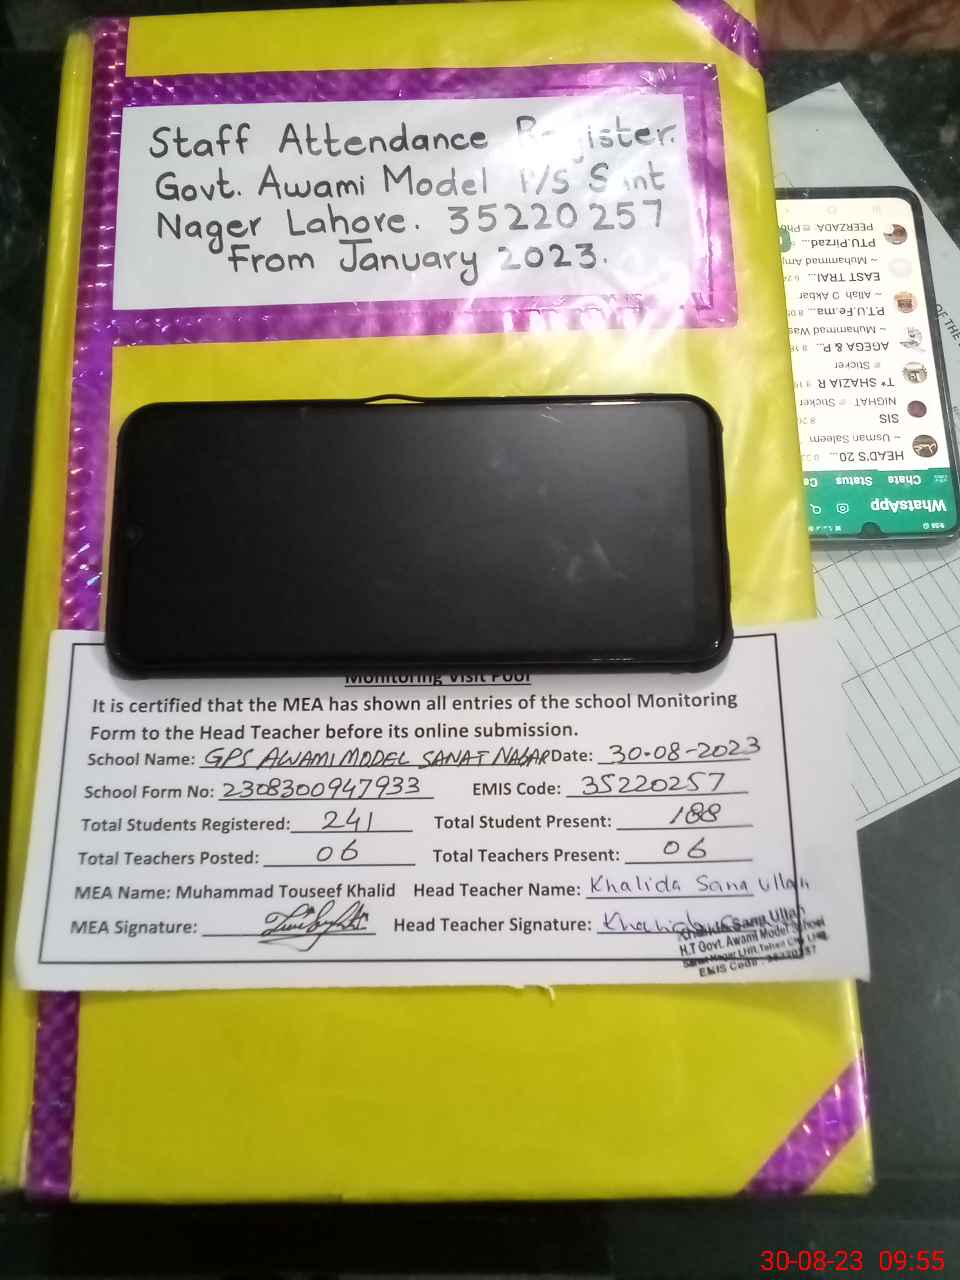 Staff Attendance Register.
Govt. Awami Model P/S Sant
Nager Lahore. 35220257
From January 2023.
Monitoring Visit Poof
It is certified that the MEA has shown all entries of the school Monitoring
Form to the Head Teacher before its online submission.
School Name: GPS AWAMI MODEL SANAT NAGAR Date: 30-08-2023
School Form No: 2308300947933 EMIS Code: 35220257
Total Students Registered: 241 Total Student Present: 188
Total Teachers Posted: 06 Total Teachers Present: 06
MEA Name: Muhammad Touseef Khalid Head Teacher Name: Khalida Sana Ullah
MEA Signature: Head Teacher Signature: Khalida
Sana Ullah
H.T Govt. Awami Model School
EMIS Code : 35220257
WhatsApp
Chats Status
HEAD'S 20...
~ Usman Saleem
SIS
NIGHAT Sticker
T* SHAZIA R
Sticker
AGEGA & P...
~ Muhammad Was
P.T.U.Fe.ma...
~ Allah Akbar
EAST TRAI...
~ Muhammad
PTU.Pirzad...
PEERZADA
OF THE
30-08-23 09:55